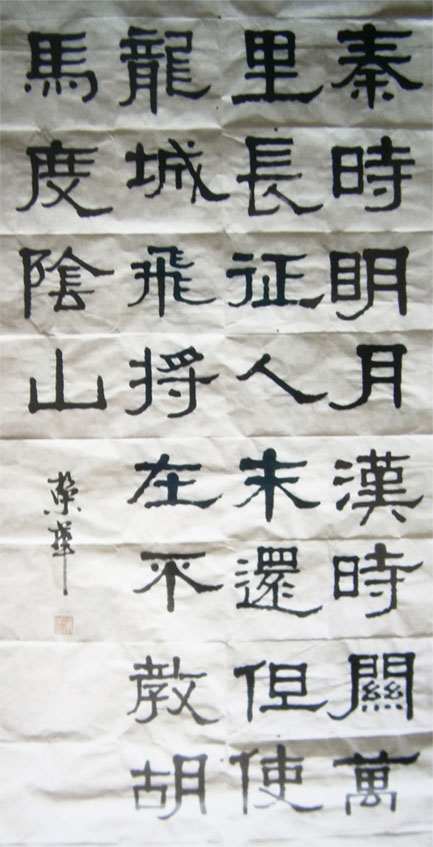 秦時明月漢時關萬
里長征人未還但使
龍城飛将在不教胡
馬度陰山